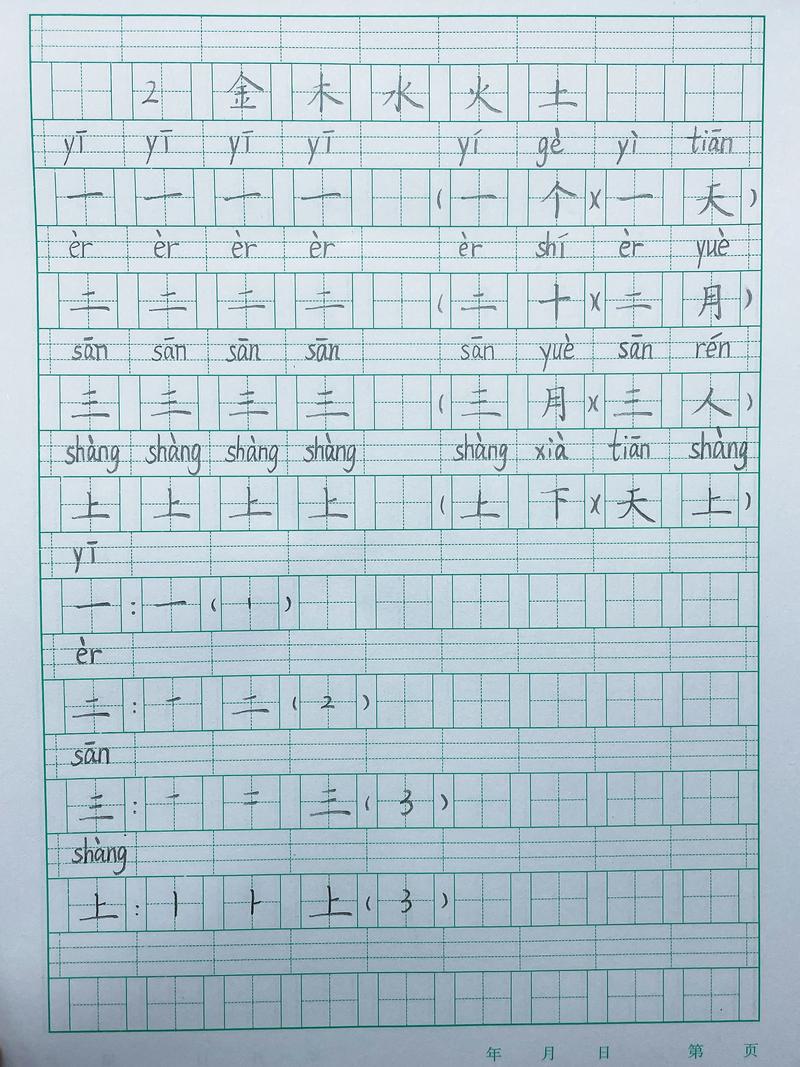 2 金 木 水 火 土
yī yī yī yī yí gè yì tiān
一 一 一 一 ( 一 个 )( 一 天 )
èr èr èr èr èr shí èr yuè
二 二 二 二 ( 二 十 )( 二 月 )
sān sān sān sān sān yuè sān rén
三 三 三 三 ( 三 月 )( 三 人 )
shàng shàng shàng shàng shàng xià tiān shàng
上 上 上 上 ( 上 下 )( 天 上 )
yī
一 : 一 ( 1 )
èr
二 : 一 二 ( 2 )
sān
三 : 一 二 三 ( 3 )
shàng
上 : 丨 ⺊ 上 ( 3 )
年 月 日 第 页